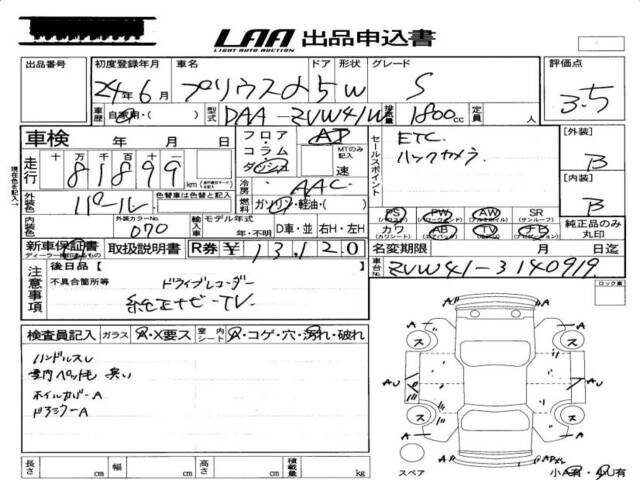 LAA 出品申込書
LIGHT AUTO AUCTION
出品番号 初度登録年月 車名 ドア 形状 グレード 評価点
24年6月 プリウスα 5 W S 3.5
車歴 自家用・( ) 型式 DAA-ZVW41W 排気量 1800cc 定員 人
車検 年 月 日 フロア・コラム・ダッシュ AT MTのみ記入 速
セールスポイント ETC. バックカメラ.
[外装] B
走行 十万 万 千 百 十 81899 km
冷房 AAC
[内装] B
現在色を記入→
外装色 パール 色替車は色替と記入 燃料 ガソリン・軽油・( )
PS PW AW SR
内装色 外装カラーNo. 070 輸入車 モデル年式 年・不明 D車・並 右H・左H
カワ AB TV ナビ 純正品のみ丸印
新車保証書 取扱説明書 R券 ¥ 13,120 名変期限 月 日迄
ディーラー
車台No. ZVW41-3140919
注意事項 後日品【 】
不具合箇所等 ドライブレコーダー
純正ナビ-TV.
ロック車
検査員記入 ガラス A・X要ス 室内シート A・コゲ・穴・汚れ・破れ
ハンドルスレ
室内ペット毛 臭い
ホイルカバーA
ドアミラーA
A A
ス ス
AU AU
ス ス
スペア 小A有・小U有
長さ cm 幅 cm 高さ cm 積載量 kg